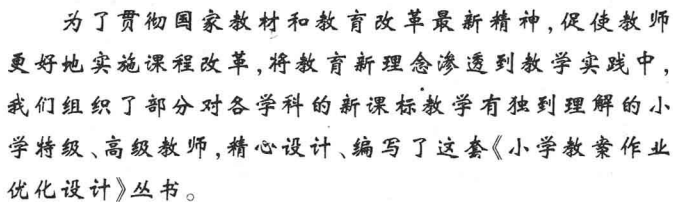 为了贯彻国家教材和教育改革最新精神,促使教师
更好地实施课程改革,将教育新理念渗透到教学实践中,
我们组织了部分对各学科的新课标教学有独到理解的小
学特级、高级教师,精心设计、编写了这套《小学教案作业
优化设计》丛书。